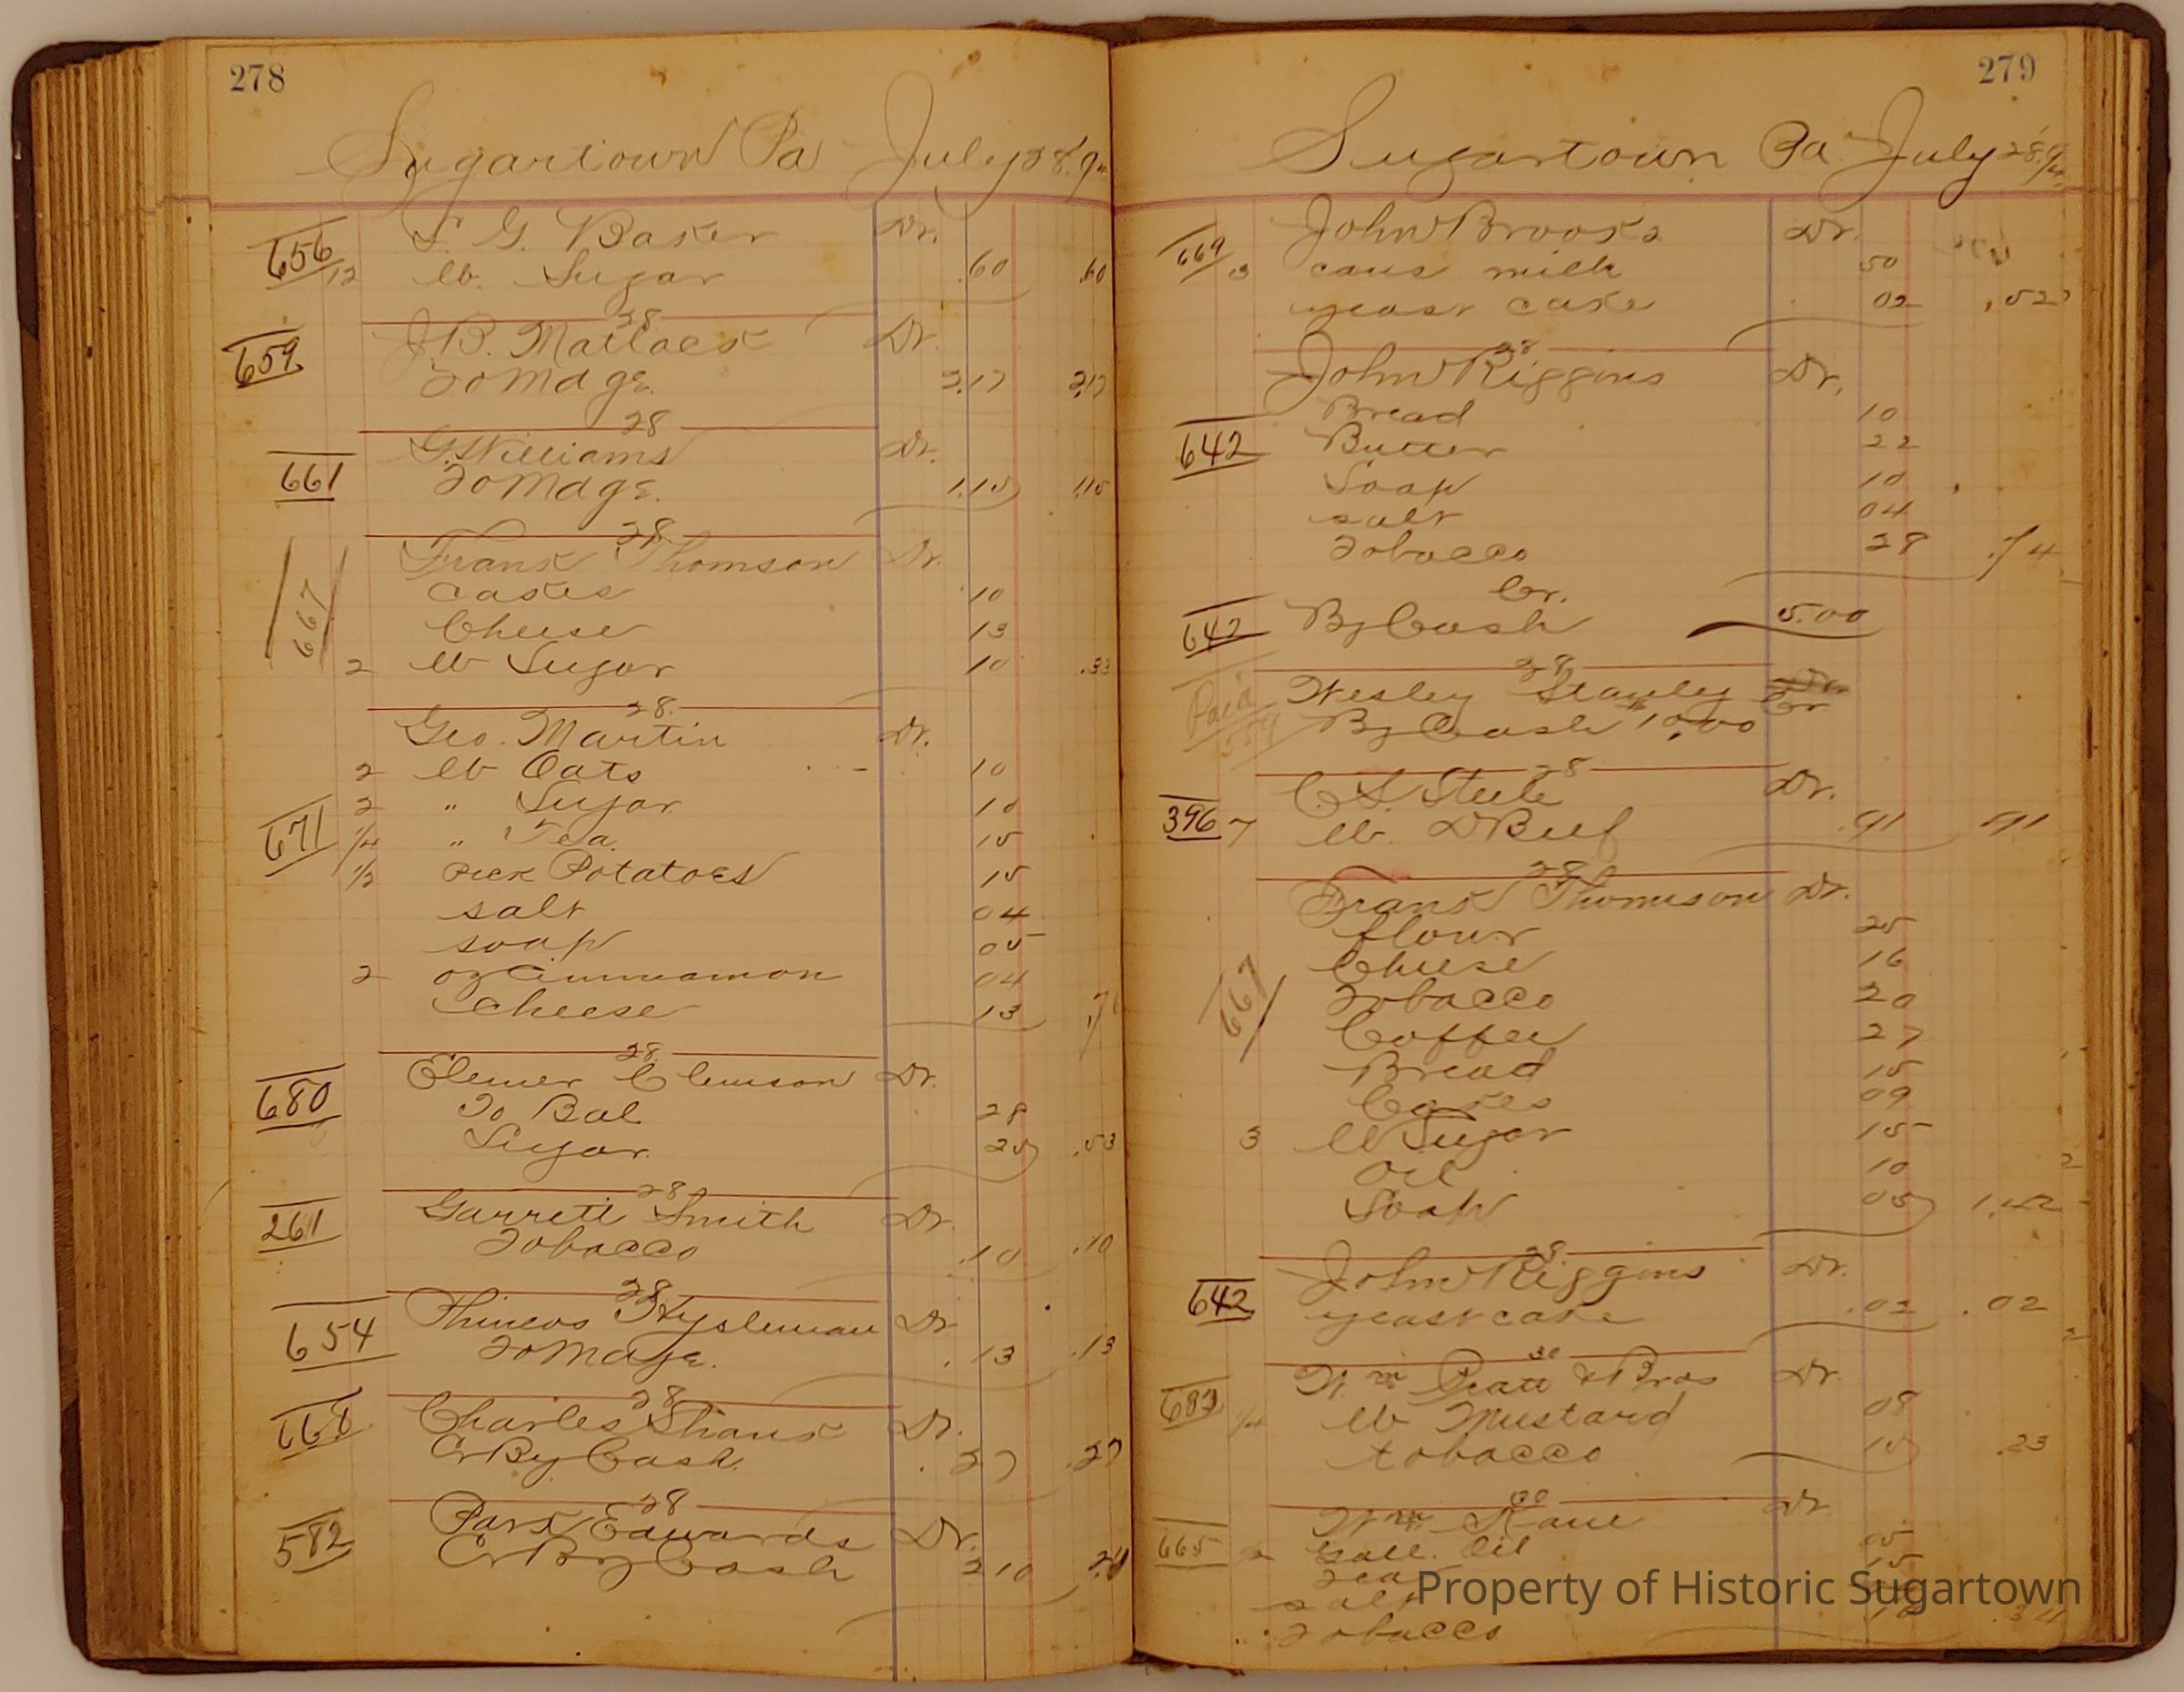 278
Sugartown Pa July 28. 94
656 S. G. Baker Dr.
12 lb. Sugar .60 .60
28
659 J. B. Matlack Dr.
To Mdge. 2.17 2.17
28
661 G. Williams Dr.
To Mdge. 1.15 1.15
28
Frank Thomson Dr.
667 Cakes 10
Cheese 13
2 lb Sugar 10 .33
28.
Geo. Martin Dr.
2 lb Oats 10
2 " Sugar 10
671 1/4 " Tea. 15
1/2 Peck Potatoes 15
salt 04
soap 05
2 oz Cinnamon 04
Cheese 13 .76
28
Elmer Clemson Dr.
680 To Bal 28
Sugar. 25 .53
28
261 Garrett Smith Dr.
Tobacco .10 .10
28
654 Phineas Dr
To Mdge. .13 .13
28
668 Charles Shank Dr.
Cr By Cash. .27 .27
28
582 Park Edwards Dr.
Cr By Cash 210
279
Sugartown Pa July 28. 94
669 John Brooks Dr.
3 cans milk 50
yeast cake 02 .52
28
John Riggins Dr.
Bread 10
642 Butter 22
Soap 10
salt 04
Tobacco 28 .74
Cr.
642 By Cash 5.00
28
Paid Wesley Stanley Cr
559 By Cash 10.00
28
C S. Steele Dr.
396 7 lb. D Beef .91 .91
28
Frank Thomson Dr.
flour 25
Cheese 16
667 Tobacco 20
Coffee 27
Bread 15
Cakes 09
3 lb Sugar 15
Oil 10
Soap 05 1.42
28
John Riggins Dr.
642 yeast cake .02 .02
30
Wm Pratt & Bros Dr.
683 1/4 lb Mustard 08
tobacco 15 .23
30
Wm Kane Dr.
665 Gall. Oil 05
Tea 15
salt
Tobacco 10
Property of Historic Sugartown